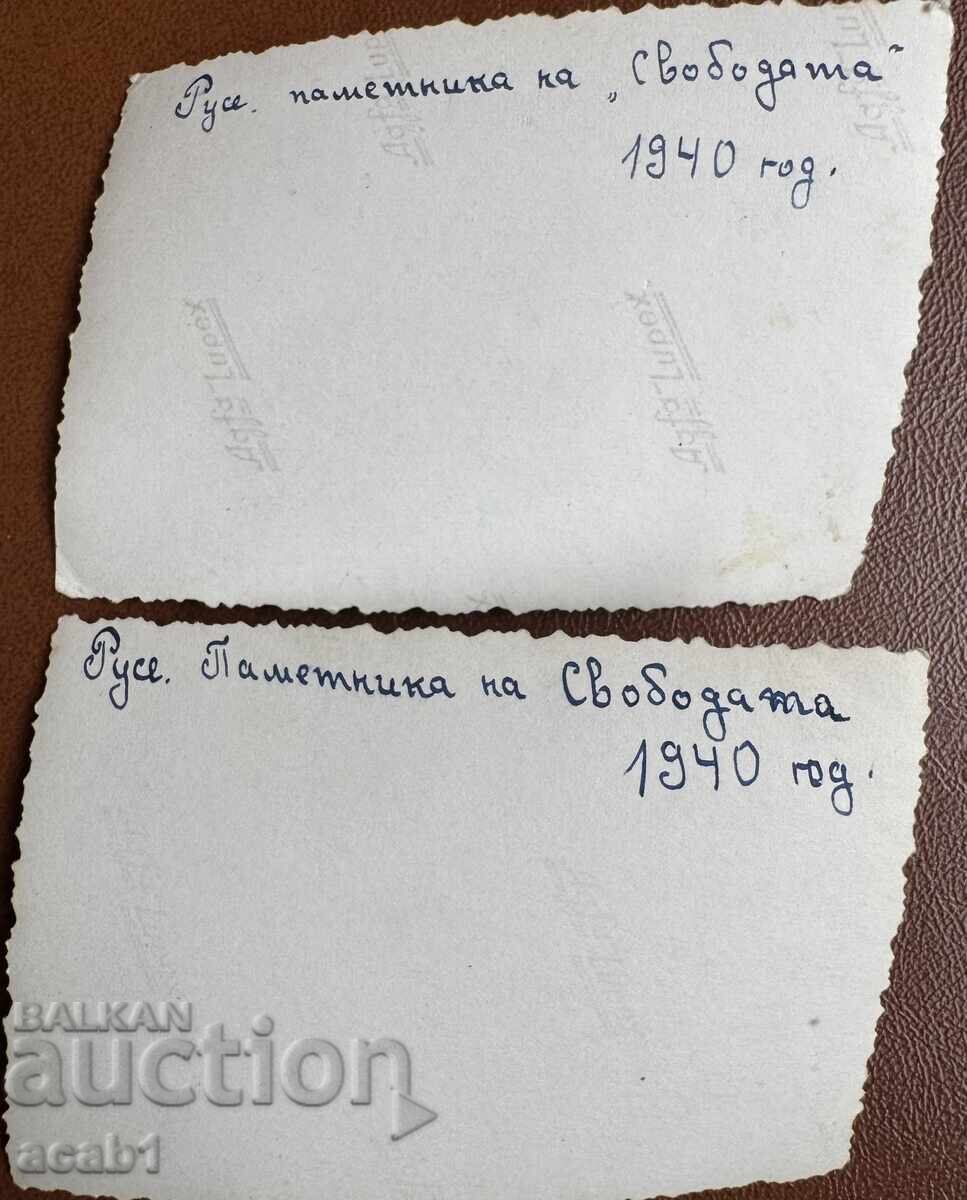 Русе. паметника на „Свободата“
1940 год.
Agfa-Lupex
Agfa-Lupex
Русе. Паметника на Свободата
1940 год.
BALKAN
auction
acab1